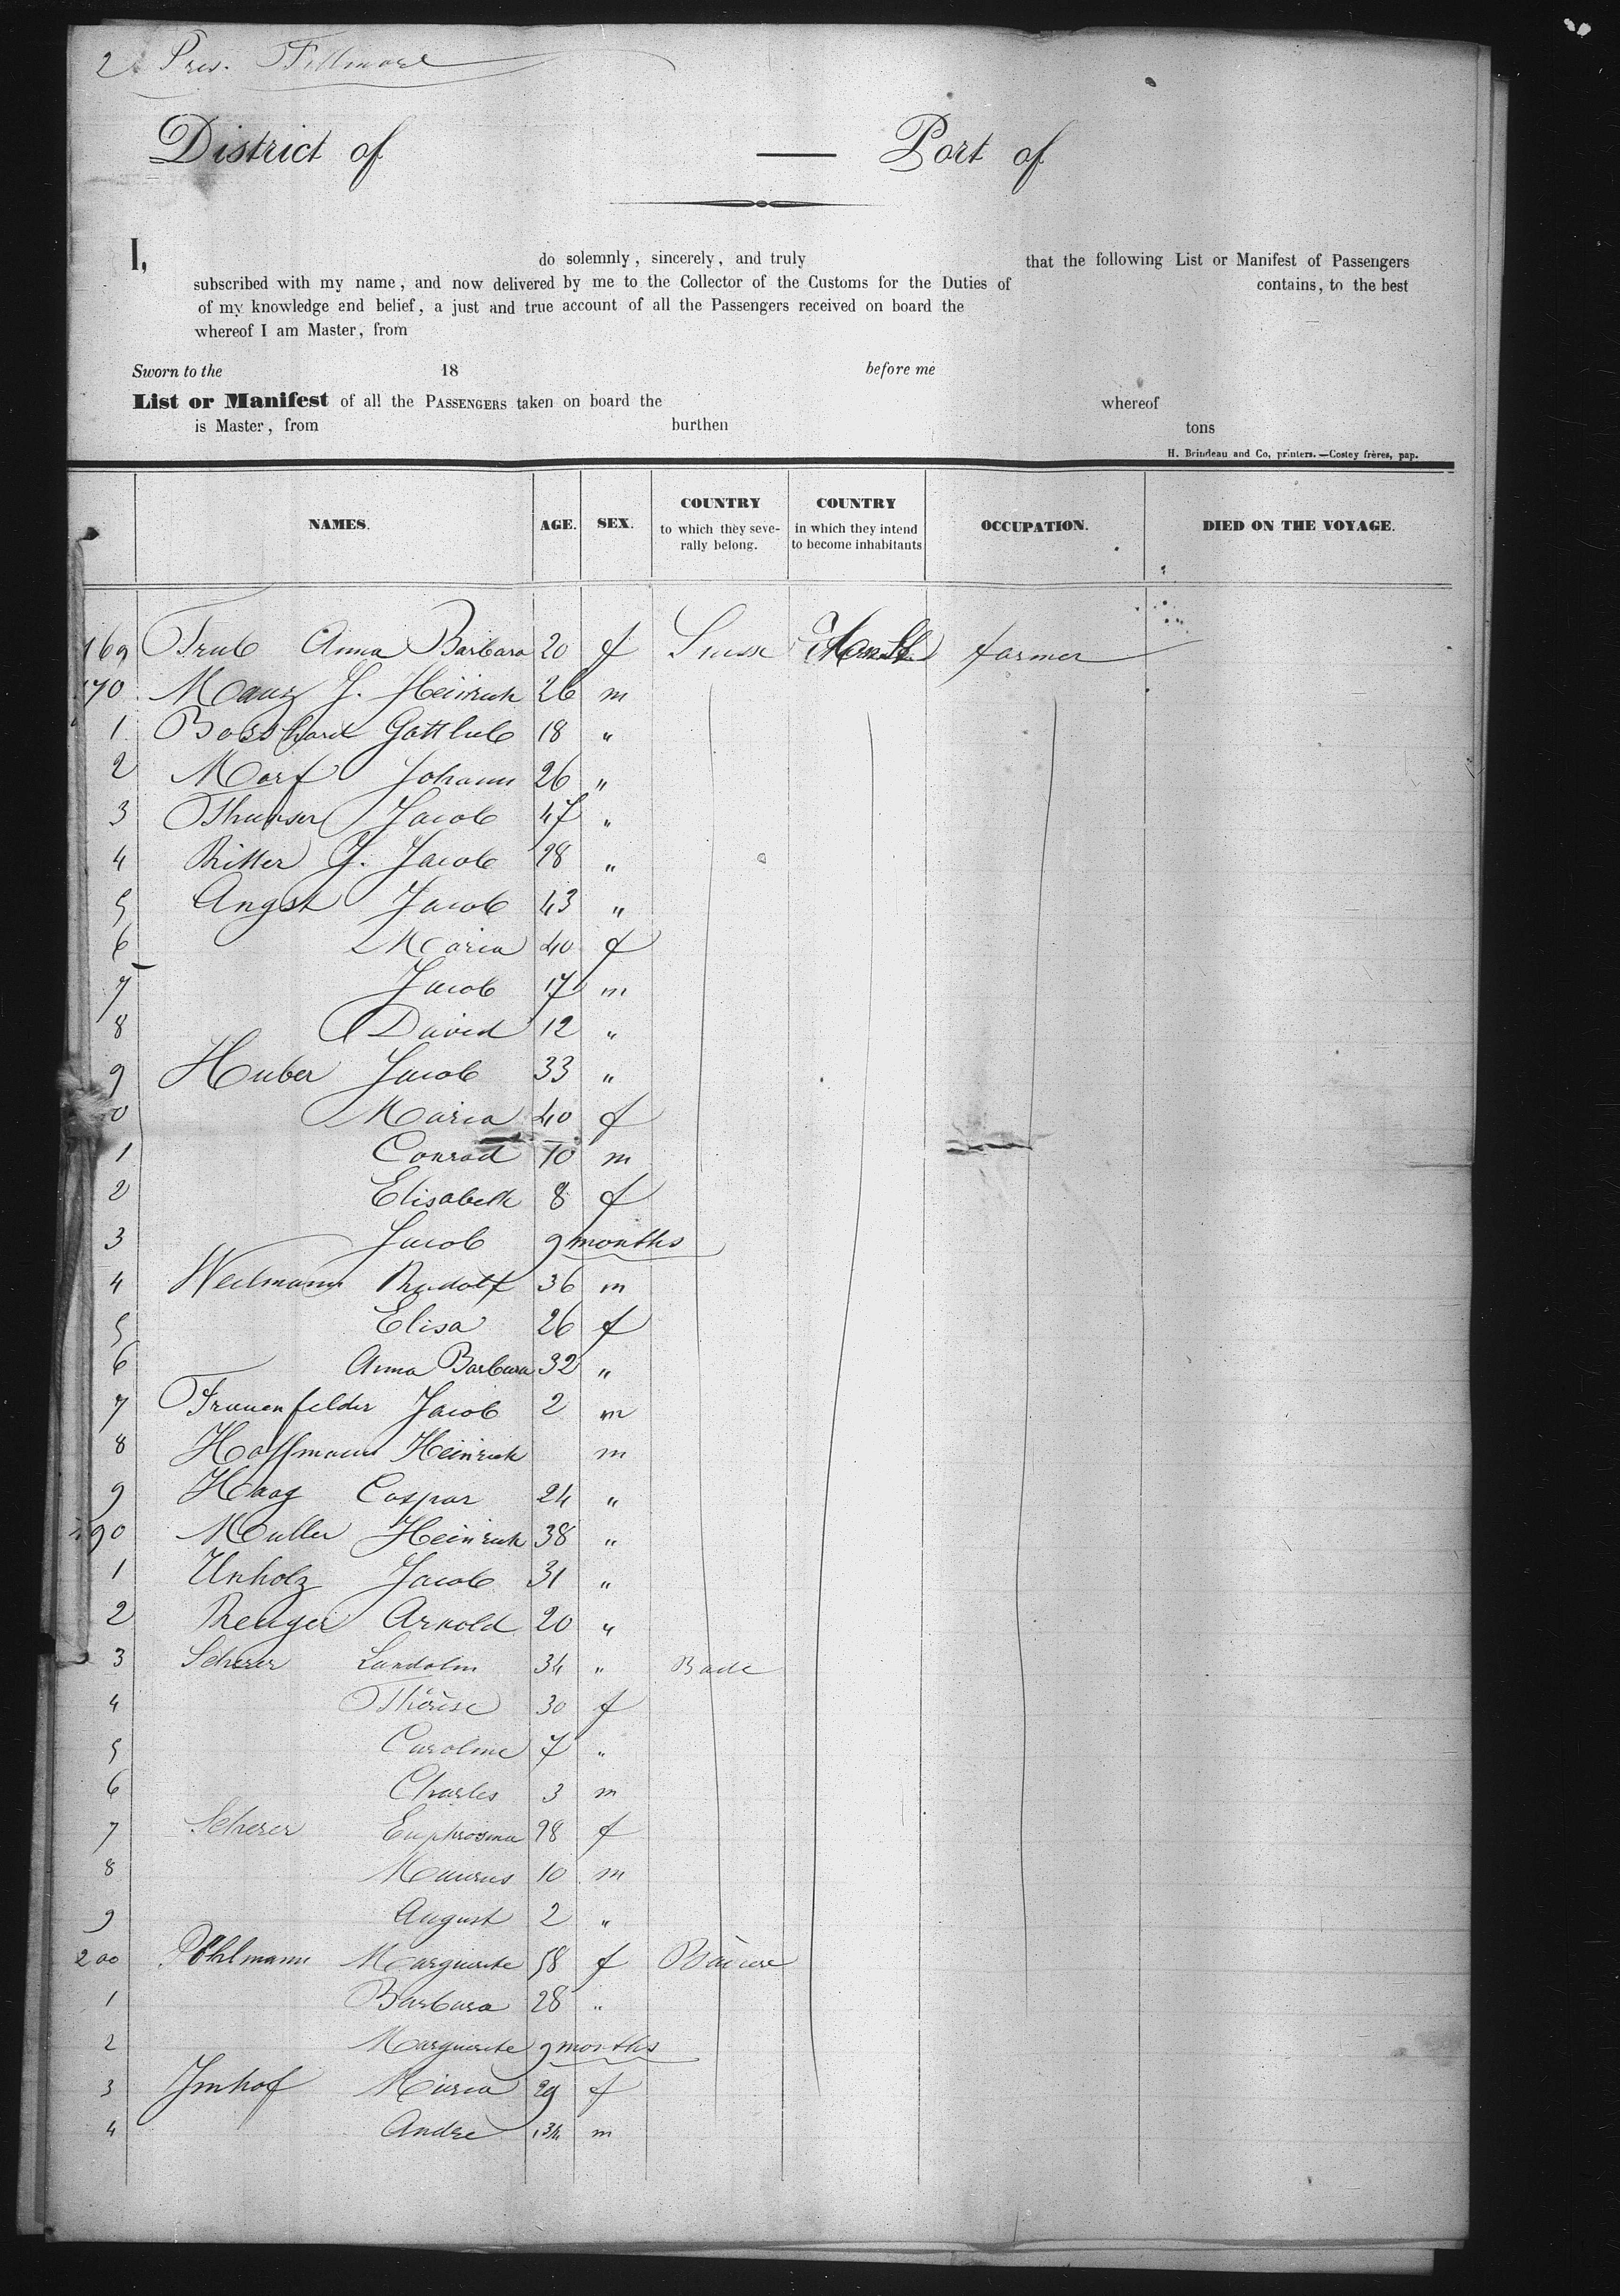 2 Pres. Fillmore
District of — Port of
I, do solemnly, sincerely, and truly that the following List or Manifest of Passengers
subscribed with my name, and now delivered by me to the Collector of the Customs for the Duties of contains, to the best
of my knowledge and belief, a just and true account of all the Passengers received on board the
whereof I am Master, from
Sworn to the 18 before me
List or Manifest of all the PASSENGERS taken on board the whereof
is Master, from burthen tons
H. Brindeau and Co, printers.—Costey frères, pap.
NAMES. AGE. SEX. COUNTRY to which they seve-rally belong. COUNTRY in which they intend to become inhabitants OCCUPATION. DIED ON THE VOYAGE.
169 Trub Anna Barbara 20 f Suisse farmer
170 Manz J. Heinrich 26 m
1 Bosshard Gottlieb 18 "
2 Morf Johann 26 "
3 Jacob 47 "
4 Ritter J. Jacob 28 "
5 Angst Jacob 43 "
6 Maria 40 f
7 Jacob 17 m
8 David 12 "
9 Huber Jacob 33 "
0 Maria 40 f
1 Conrad 10 m
2 Elisabeth 8 f
3 Jacob 9 months
4 Weilmann Rudolf 36 m
5 Elisa 26 f
6 Anna Barbara 32 "
7 Frauenfelder Jacob 2 m
8 Hoffmann Heinrich m
9 Haag Caspar 24 "
190 Muller Heinrich 38 "
1 Unholz Jacob 31 "
2 Arnold 20 "
3 Scherer Landolin 34 " Bade
4 Thérèse 30 f
5 Caroline 7 "
6 Charles 3 m
7 Scherer Euphrosina 28 f
8 Maurus 10 m
9 August 2 "
200 Pöhlmann Marguerite 58 f Bavière
1 Barbara 28 "
2 Marguerite 9 months
3 Imhof Maria 29 f
4 Andre 1 3/4 m